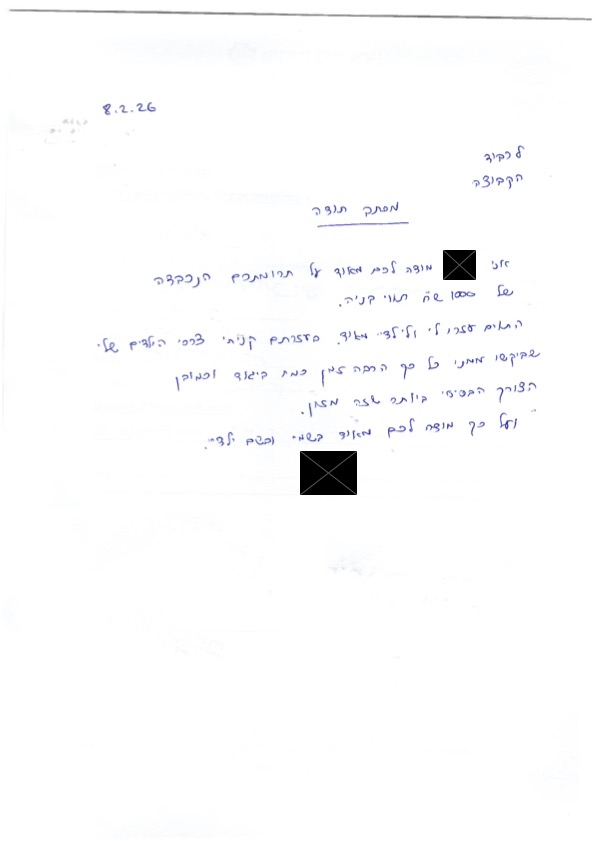 8.2.26
לכבוד
הקבוצה
מכתב תודה
אני מודה לכם מאוד על תרומתכם הנכבדה
של 1000 שח תווי קניה.
התווים עזרו לי ולילדיי מאוד. בעזרתם קניתי צרכי הילדים שלי
שביקשו ממני כל כך הרבה זמן כמו ביגוד וכמובן
הצורך הבסיסי ביותר שזה מזון.
ועל כך מודה לכם מאוד בשמי ובשם ילדיי.